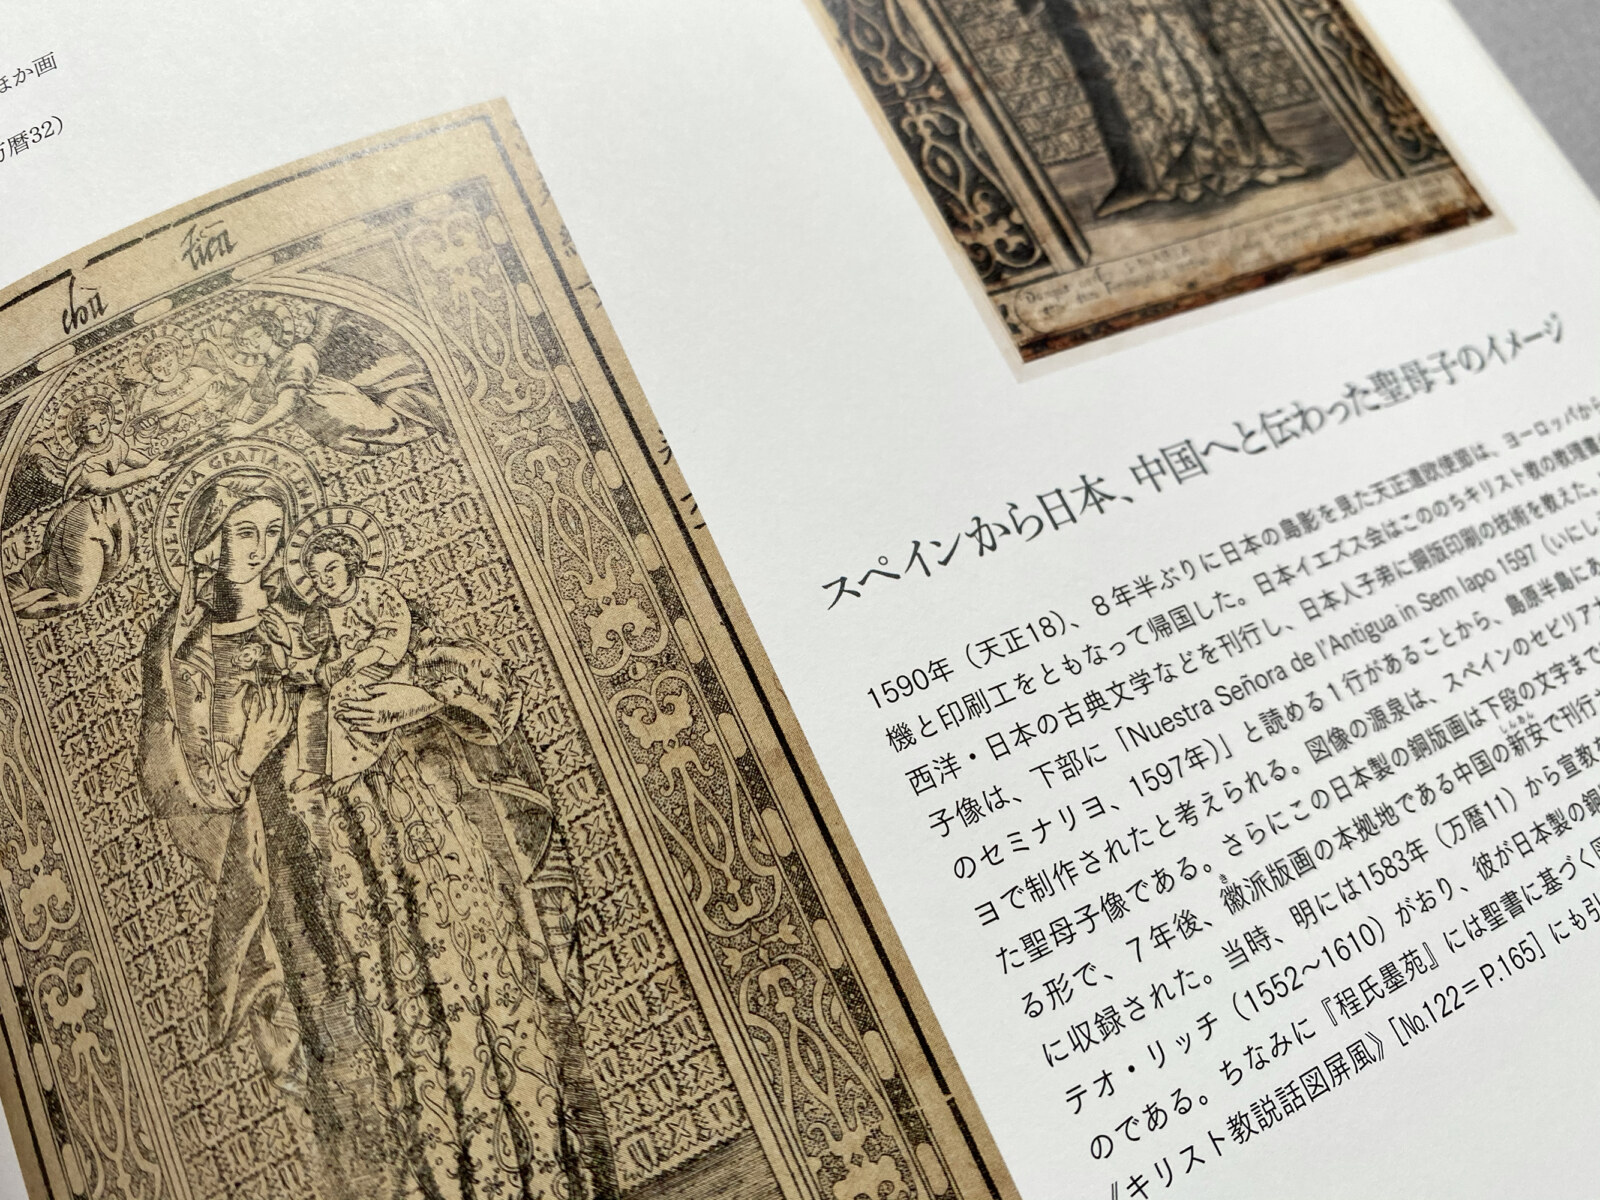 ほか画
万暦32）
chū
tień
AVE MARIA GRATIA PLENA
スペインから日本、中国へと伝わった聖母子のイメージ
1590年（天正18）、8年半ぶりに日本の島影を見た天正遣欧使節は、ヨーロッパから
機と印刷工をともなって帰国した。日本イエズス会はこののちキリスト教の教理書
西洋・日本の古典文学などを刊行し、日本人子弟に銅版印刷の技術を教えた。
子像は、下部に「Nuestra Señora de l'Antigua in Sem Iapo 1597（いにし
のセミナリヨ、1597年）」と読める1行があることから、島原半島にあ
ヨで制作されたと考えられる。図像の源泉は、スペインのセビリア
た聖母子像である。さらにこの日本製の銅版画は下段の文字まで
る形で、7年後、徽派版画の本拠地である中国の新安で刊行
に収録された。当時、明には1583年（万暦11）から宣教
テオ・リッチ（1552〜1610）がおり、彼が日本製の銅
のである。ちなみに『程氏墨苑』には聖書に基づく図
《キリスト教説話図屏風》［No.122＝P.165］にも引